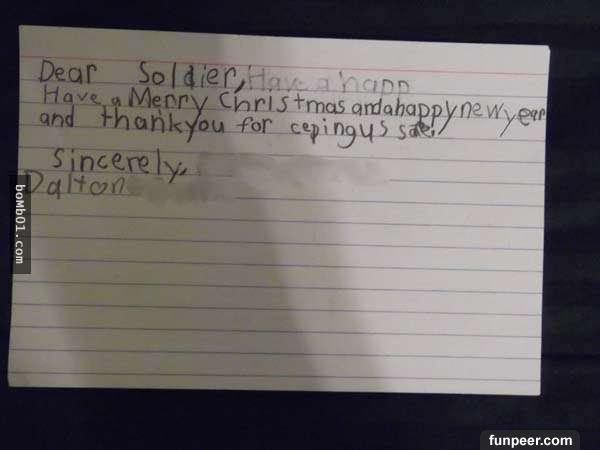 Dear Soldier, Have a happ
Have a Merry Christmas and a happy new year
and thank you for ceping us safe.
Sincerely,
Dalton
boMb01.com
funpeer.com